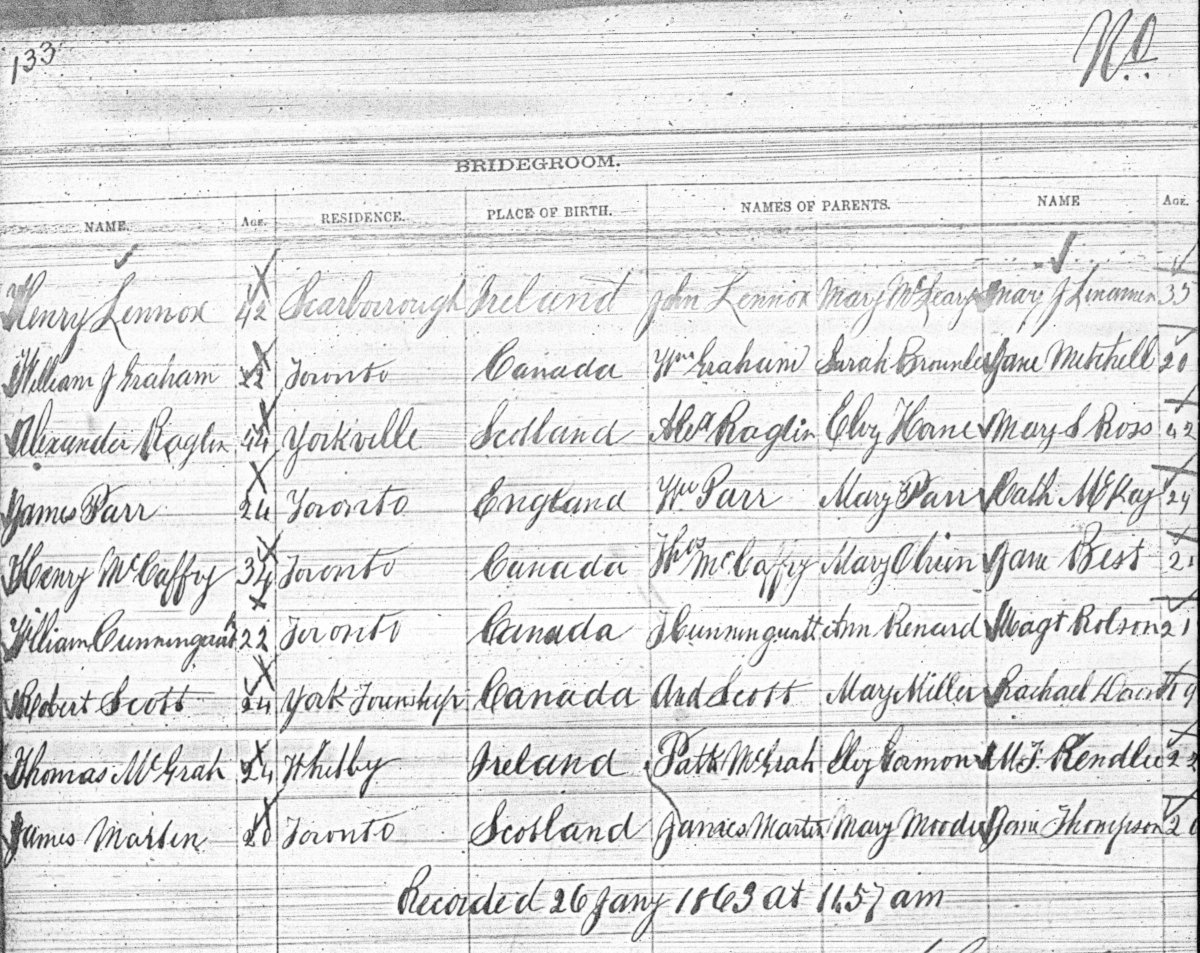 133
No
BRIDEGROOM.
NAME. AGE. RESIDENCE. PLACE OF BIRTH. NAMES OF PARENTS. NAME AGE.
Henry Lennox 42 Scarborrough Ireland John Lennox Mary McLeary Mary J Linamen 35
William J Graham 22 Toronto Canada Wm Graham Sarah Brownlee Jane Mitchell 20
Alexander Raglin 44 Yorkville Scotland Alexr Raglin Elvy Horne Mary S Ross 42
James Parr 24 Toronto England Wm Parr Mary Parr Cath McKay
Henry McCaffry 34 Toronto Canada Thos McCaffry Mary OBrien Jane Best 21
William 22 Toronto Canada Ann Renard Magt Rolson 21
Robert Scott 24 York Township Canada And Scott Mary Miller Rachael 19
Thomas McGrah 24 Whitby Ireland Patk McGrah Elvy Eamon M.J. Kendle 22
James Marten 20 Toronto Scotland James Martin Mary Moodie Jane Thompson
Recorded 26 Jany 1863 at 11.57 am